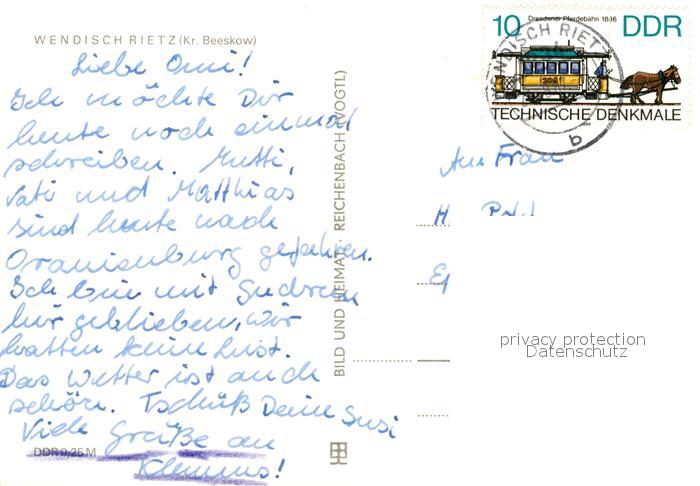 WENDISCH RIETZ (Kr. Beeskow)
Liebe Omi!
Ich möchte Dir
heute noch einmal
schreiben. Mutti,
Vati und Matthias
sind heute nach
Oranienburg gefahren.
Ich bin mit Gudrun
hir geblieben, wir
hatten keine Lust.
Das Wetter ist auch
schön. Tschüß Deine Susi
Viele Grüße an
Klemens!
DDR 0,25 M
BILD UND HEIMAT REICHENBACH (VOGTL)
10 Dresdener Pferdebahn 1886 DDR
WENDISCH RIETZ
TECHNISCHE DENKMALE
b
An Frau
H.
privacy protection
Datenschutz